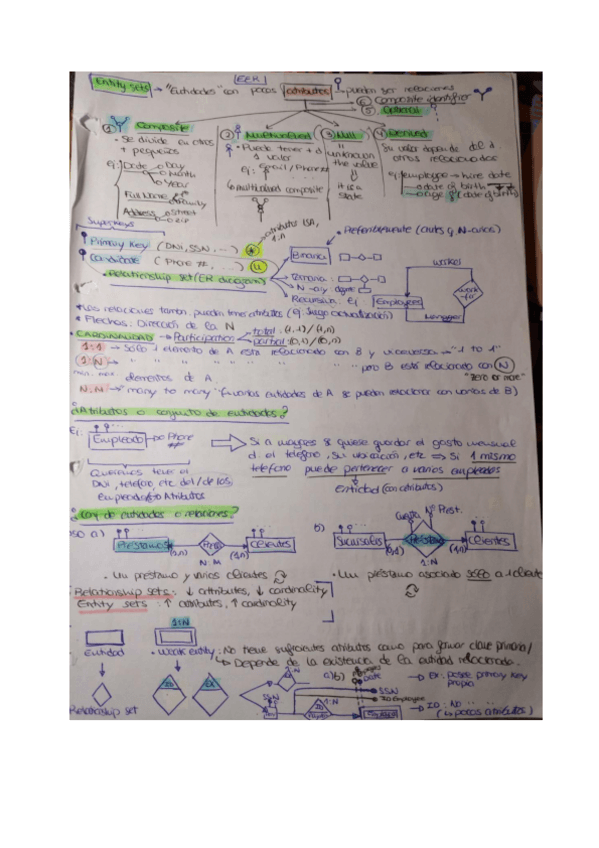 EER
Entity sets → "Entidades" con pocos atributos → pueden ser relaciones
⑥ Composite identifier
⑤ General
① Composite
② Multivalued
③ Null
④ Derived
• Se divide en otros + pequeños
• Puede tener + d 1 valor
"unknown the value"
Su valor depende del d. otros relacionados
ej: Date → Day
→ Month
→ Year
Full Name
Address → Street
→ zip
ej: Email / Phone #
↳ Multivalued composite
it is a state
ej: employee → hire date
→ date of birth
→ age (date of birth)
Superkeys
atributos ISA, 1:N
• Primary key (DNI, SSN, ...)
• Candidate (Phone #, ...)
U
• Relationship set (ER diagram)
• Preferiblemente (antes q N-arias)
Binaria
Ternaria
N-ary
Recursiva: Ej
Employees
worker
work for
Manager
• Las relaciones también pueden tener atributos
• Flechas: Dirección de la N
• CARDINALIDAD → Participation → total: (1,1) / (1,n)
→ partial: (0,1) / (0,n)
1:1 → Sólo 1 elemento de A está relacionado con B y viceversa → "1 to 1"
1:N → " " " " " " " pero B está relacionado con N
min. max elementos de A
"zero or more"
N:N → "many to many" (varias entidades de A se pueden relacionar con varias de B)
¿Atributos o conjunto de entidades?
Ej:
Empleado
Phone
Si a mayores se quiere guardar el gasto mensual
d. el teléfono, su ubicación, etc ⇒ Si 1 mismo
teléfono puede pertenecer a varios empleados
Entidad (con atributos)
Queremos tener el
DNI, teléfono, etc. del / de los
Empleados → Atributos
¿Conj de entidades o relaciones?
a)
PRÉSTAMOS
(0,n)
Prest
(1,n)
Clientes
N:M
b)
Cuota
Nº Prest.
Sucursales
(0,1)
PRÉSTAMO
(1,n)
Clientes
1:N
• Un préstamo y varios clientes
• Un préstamo asociado sólo a 1 cliente
Relationship sets: ↓ attributes, ↓ cardinality
Entity sets: ↑ attributes, ↑ cardinality
1:N
Entidad
• Weak entity: No tiene suficientes atributos como para formar clave primaria /
↳ Depende de la existencia de la entidad relacionada.
Relationship set
ID
EX
1:N
SSN
a) b)
date
→ EX: Posee primary key propia
SSN
ID Employee
1:N
→ ID: No " "
(↳ pocos atributos)